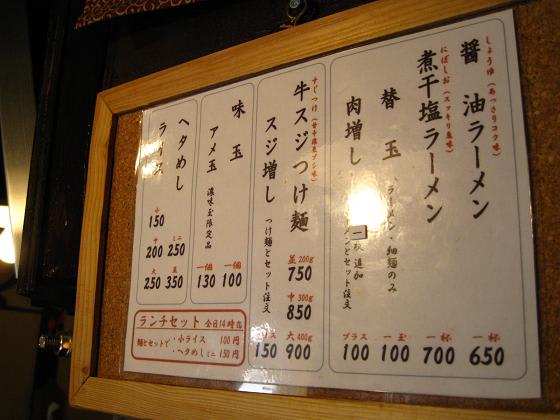 しょうゆ(あっさりコク味)
醤油ラーメン
一杯 650
にぼしお(スッキリ塩味)
煮干塩ラーメン
一杯 700
替玉 ラーメン・細麺のみ
一玉 100
肉増し 一枚追加 ラーメンとセット注文
プラス 100
すじつけ
牛スジつけ麺
並 200g 750
中 300g 850
大 400g 900
スジ増し つけ麺とセット注文
150
味玉
一個 100
アメ玉 濃味玉限定品
一個 130
ヘタめし
ミニ 250
並 350
ライス
小 150
中 200
大 250
ランチセット 全日14時迄
麺とセットで ・小ライス 100円
・ヘタめしミニ 150円